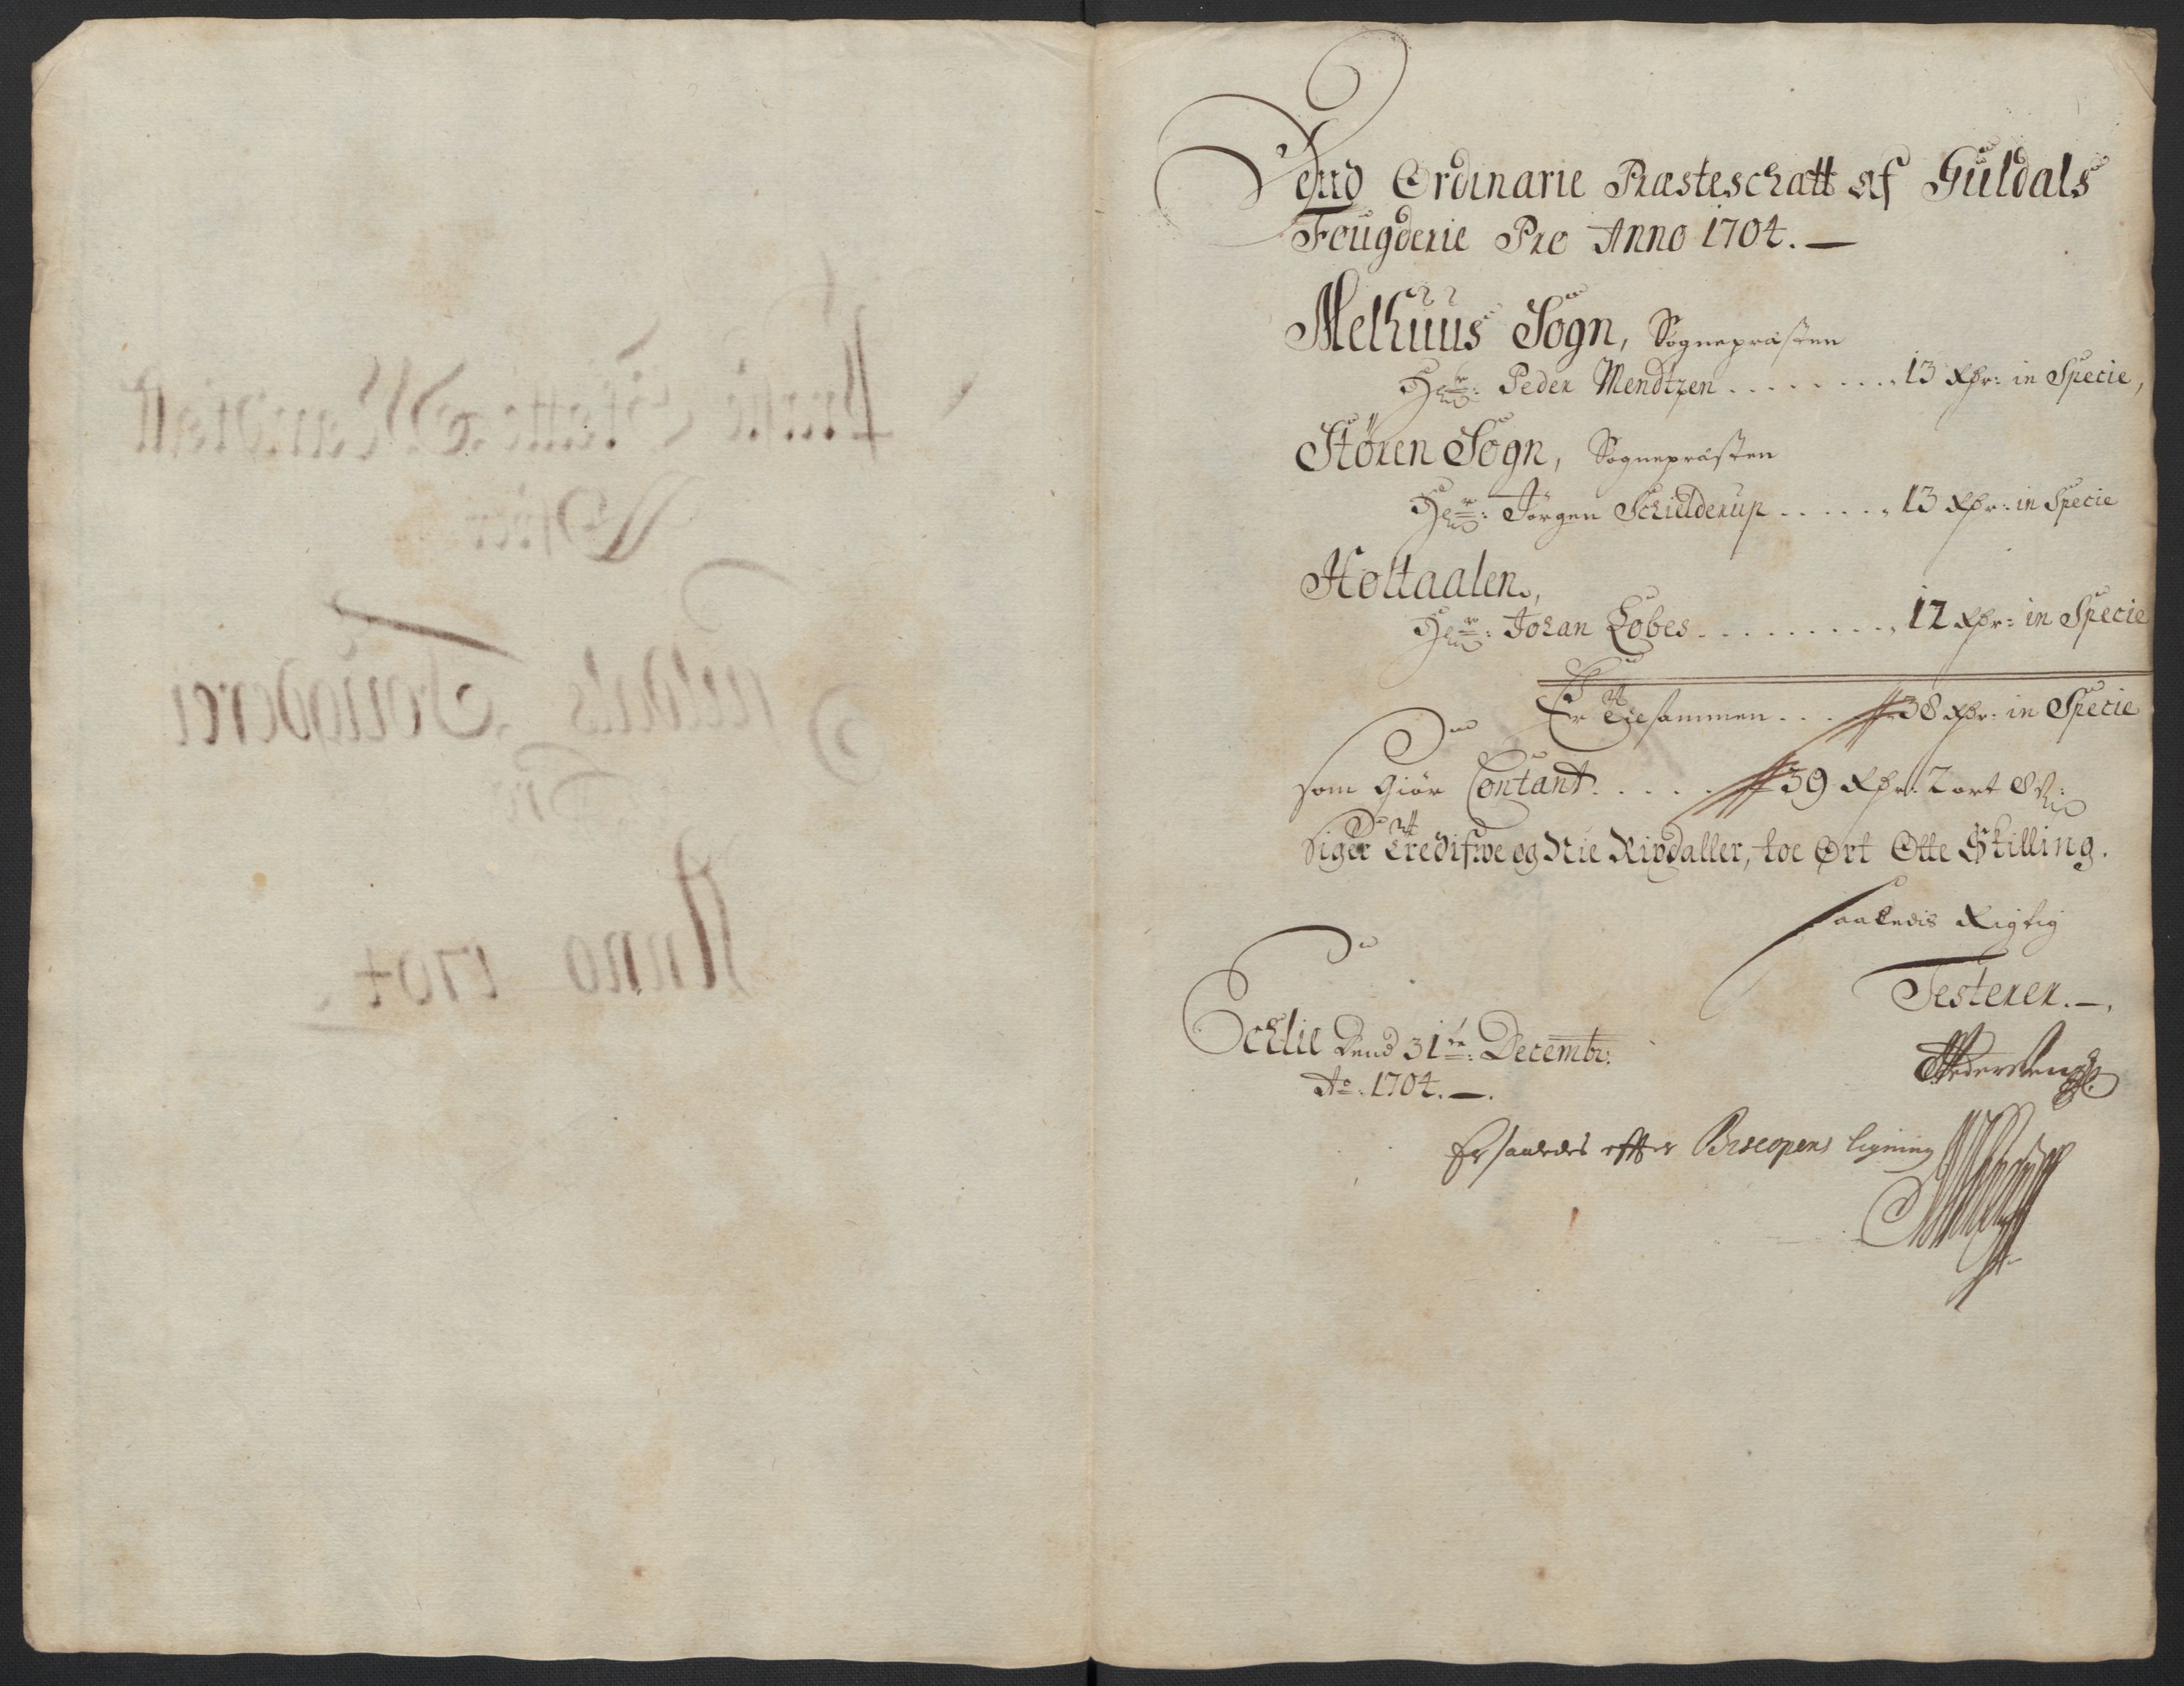 Dend Ordinarie Præsteschatt af Guldals
Fougderie Pro Anno 1704. —
Melhuus Sogn, Sognepræsten
Her: Peder Mendtzen . . . . . . . . 13 Rdr: in Specie,
Stören Sogn, Sognepræsten
Her: Jörgen Schielderup . . . . . . 13 Rdr: in Specie
Holtaalen,
Her: Johan Lobes . . . . . . . . . 12 Rdr: in Specie
Er Tilsammen . . . 38 Rdr: in Specie
som giör Contant . . . . . 39 Rdr: 2 ort 8 s:
Siger Tredifwe og Nie Rixdaller, toe Ort Otte Skilling.
Saaledis Rigtig
Testerer. —.
Dend 31te: Decembr:
Ao: 1704. —.
Er saaledes efter Biscopens ligning